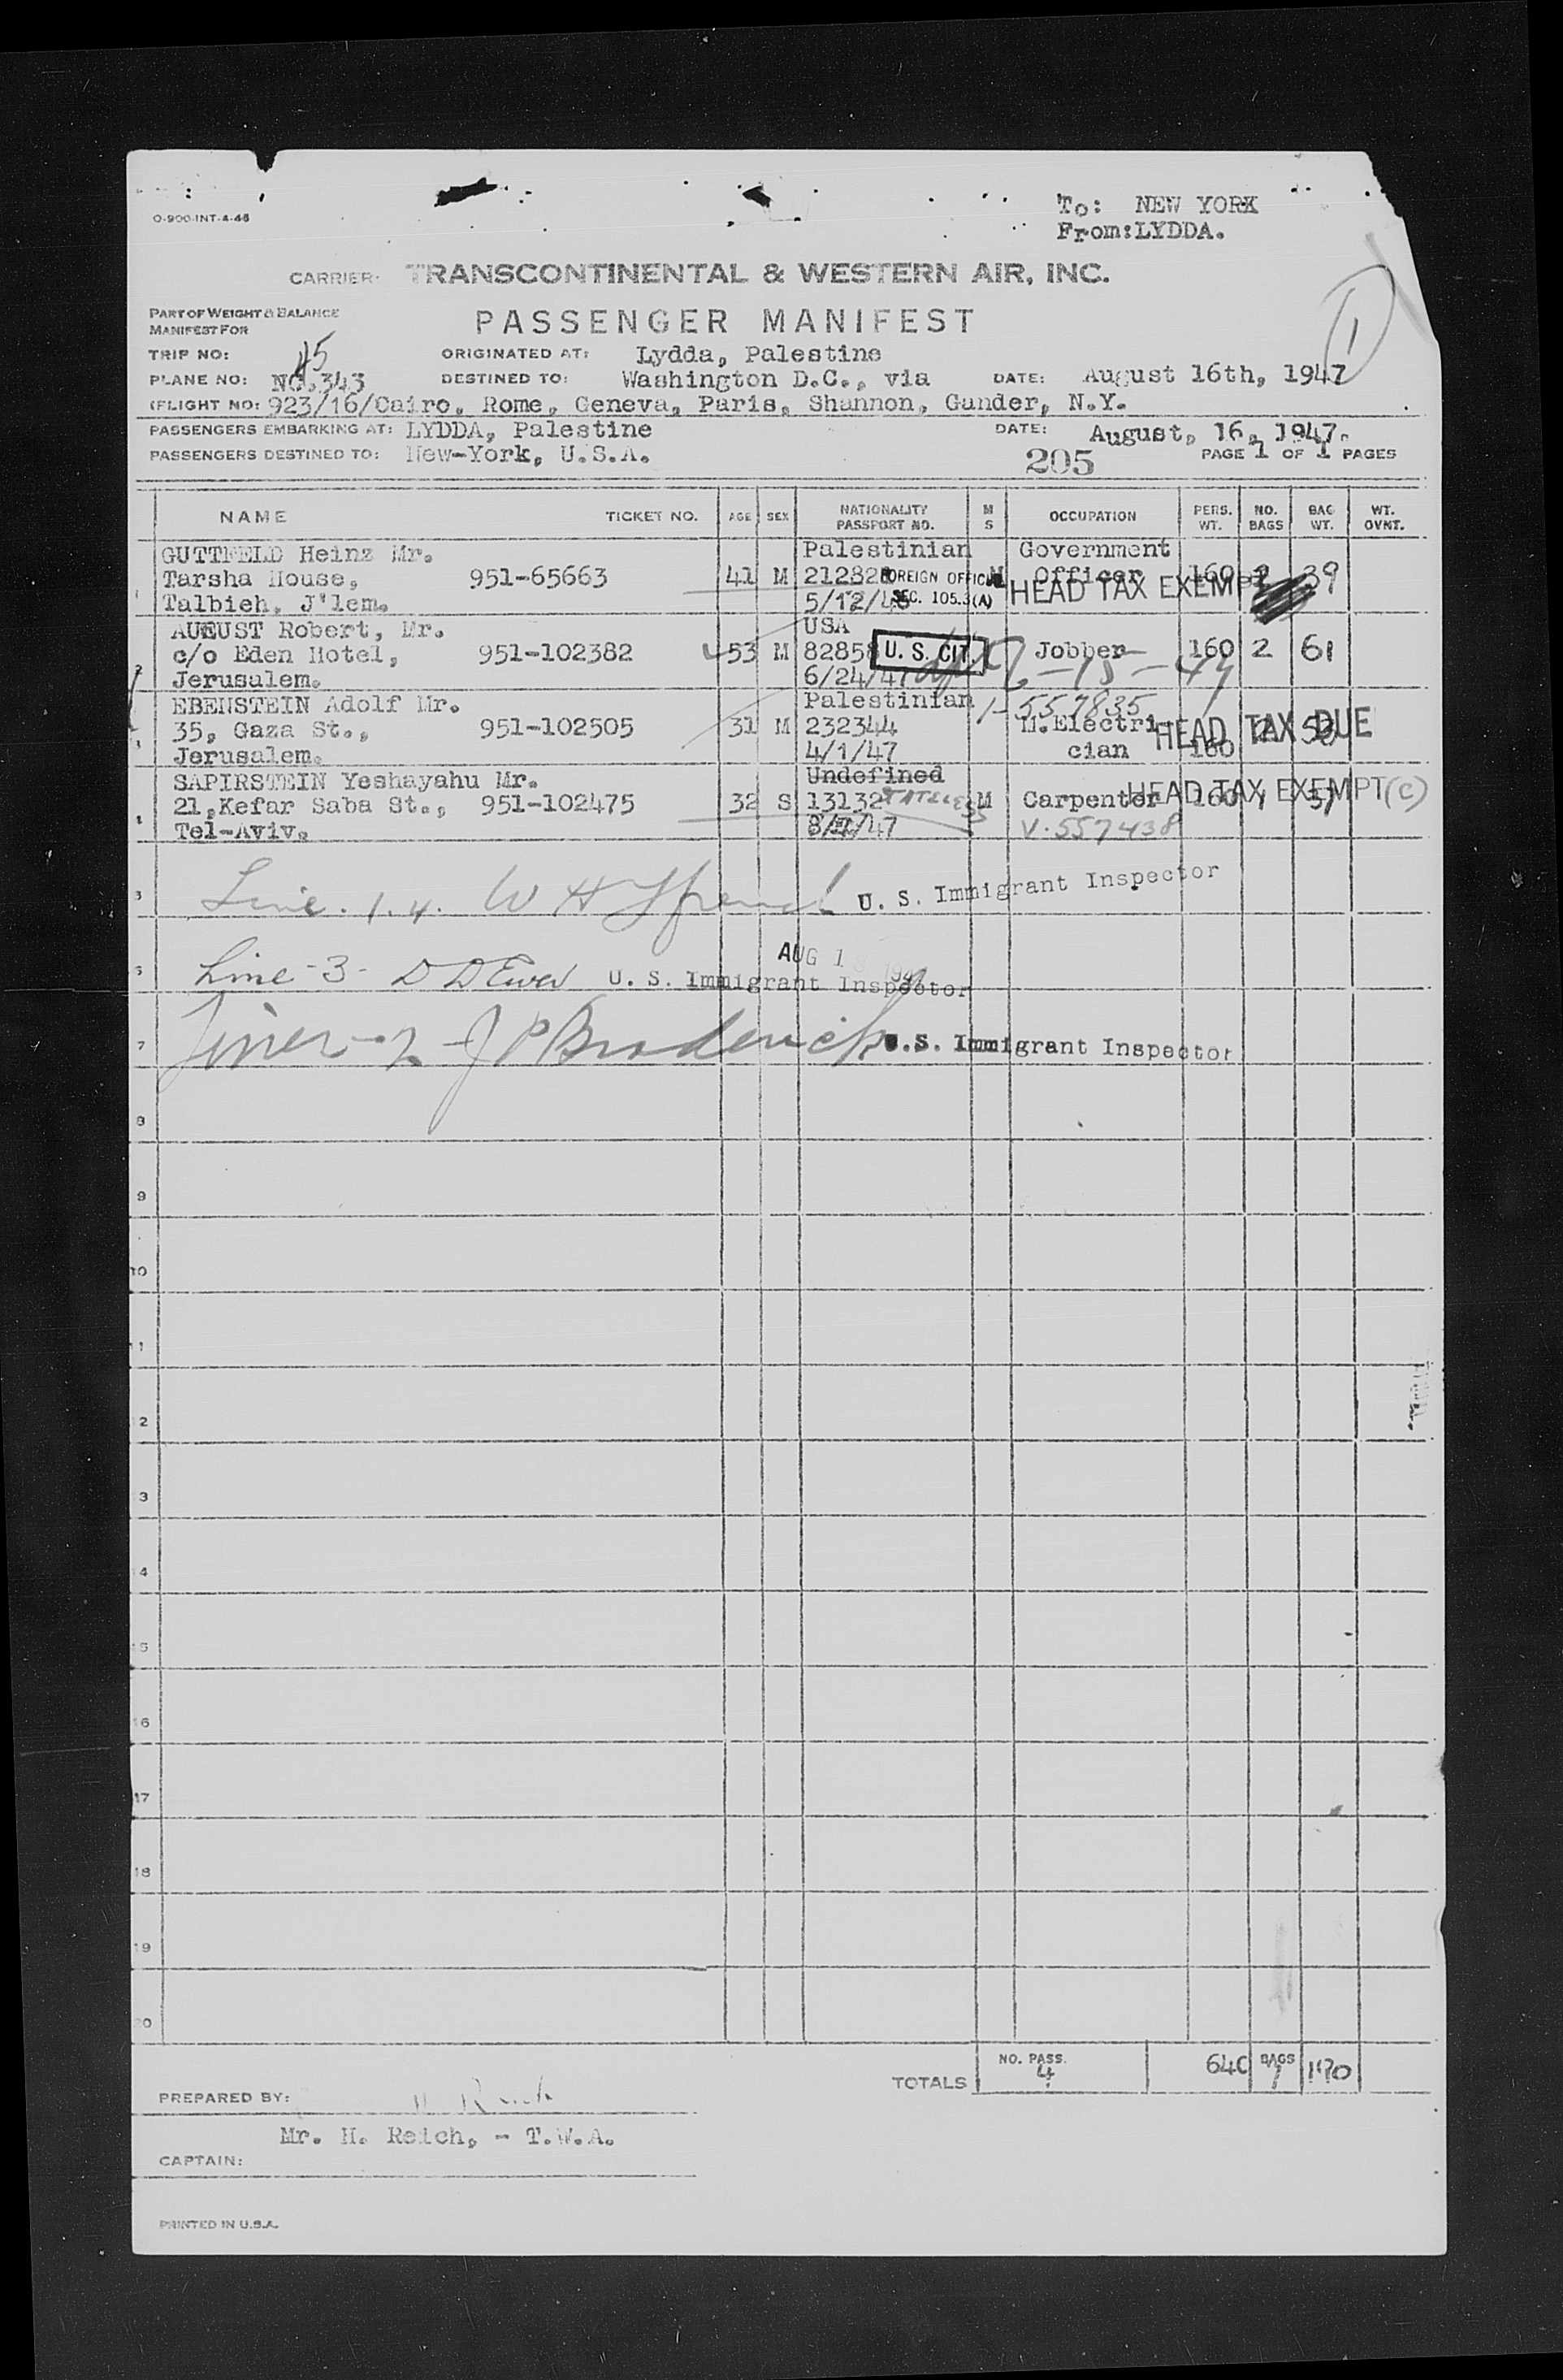 O-900-INT-4-46
To: NEW YORK
From:LYDDA.
CARRIER: TRANSCONTINENTAL & WESTERN AIR, INC.
1
PART OF WEIGHT & BALANCE
MANIFEST FOR
PASSENGER MANIFEST
TRIP NO: ORIGINATED AT: Lydda, Palestine
PLANE NO: NO.343 DESTINED TO: Washington D.C., via DATE: August 16th, 1947
(FLIGHT NO: 923/16/Cairo, Rome, Geneva, Paris, Shannon, Gander, N.Y.
PASSENGERS EMBARKING AT: LYDDA, Palestine DATE: August, 16, 1947.
PASSENGERS DESTINED TO: New-York, U.S.A. 205 PAGE 1 OF 1 PAGES
NAME TICKET NO. AGE SEX NATIONALITY PASSPORT NO. M S OCCUPATION PERS. WT. NO. BAGS BAG WT. WT. OVNT.
GUTTFELD Heinz Mr. Palestinian Government
Tarsha House, 951-65663 41 M 21282 FOREIGN OFFICIAL M Officer 160 2 39
HEAD TAX EXEMPT
Talbieh, J'lem. 5/12/46 SEC. 105.3(A)
AUGUST Robert, Mr. USA
c/o Eden Hotel, 951-102382 53 M 8285 U. S. CIT Jobber 160 2 61
2 Jerusalem. 6/24/47
EBENSTEIN Adolf Mr. Palestinian 557835
35, Gaza St., 951-102505 31 M 232344 M.Electri- HEAD TAX DUE
Jerusalem. 4/1/47 cian 160
SAPIRSTEIN Yeshayahu Mr. Undefined
21,Kefar Saba St., 951-102475 32 S 13132 STATELESS M Carpenter 160 1 HEAD TAX EXEMPT (C)
Tel-Aviv. 8/ /47 V-557438
Line. 1.4. W H U. S. Immigrant Inspector
AUG 1 1947
Line-3- D D U. S. Immigrant Inspector
7 Line-2 J P Broderick U.S. Immigrant Inspector
8
9
10
11
2
3
4
15
16
17
18
19
20
TOTALS NO. PASS. 4 640 BAGS 7 190
PREPARED BY:
Mr. H. Reich, - T.W.A.
CAPTAIN:
PRINTED IN U.S.A.